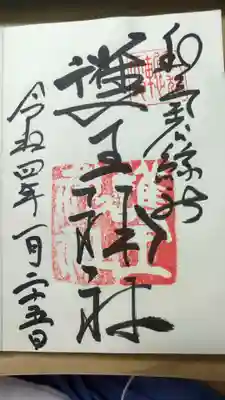 和気公綜社
護王神社
令和四年一月二十五日